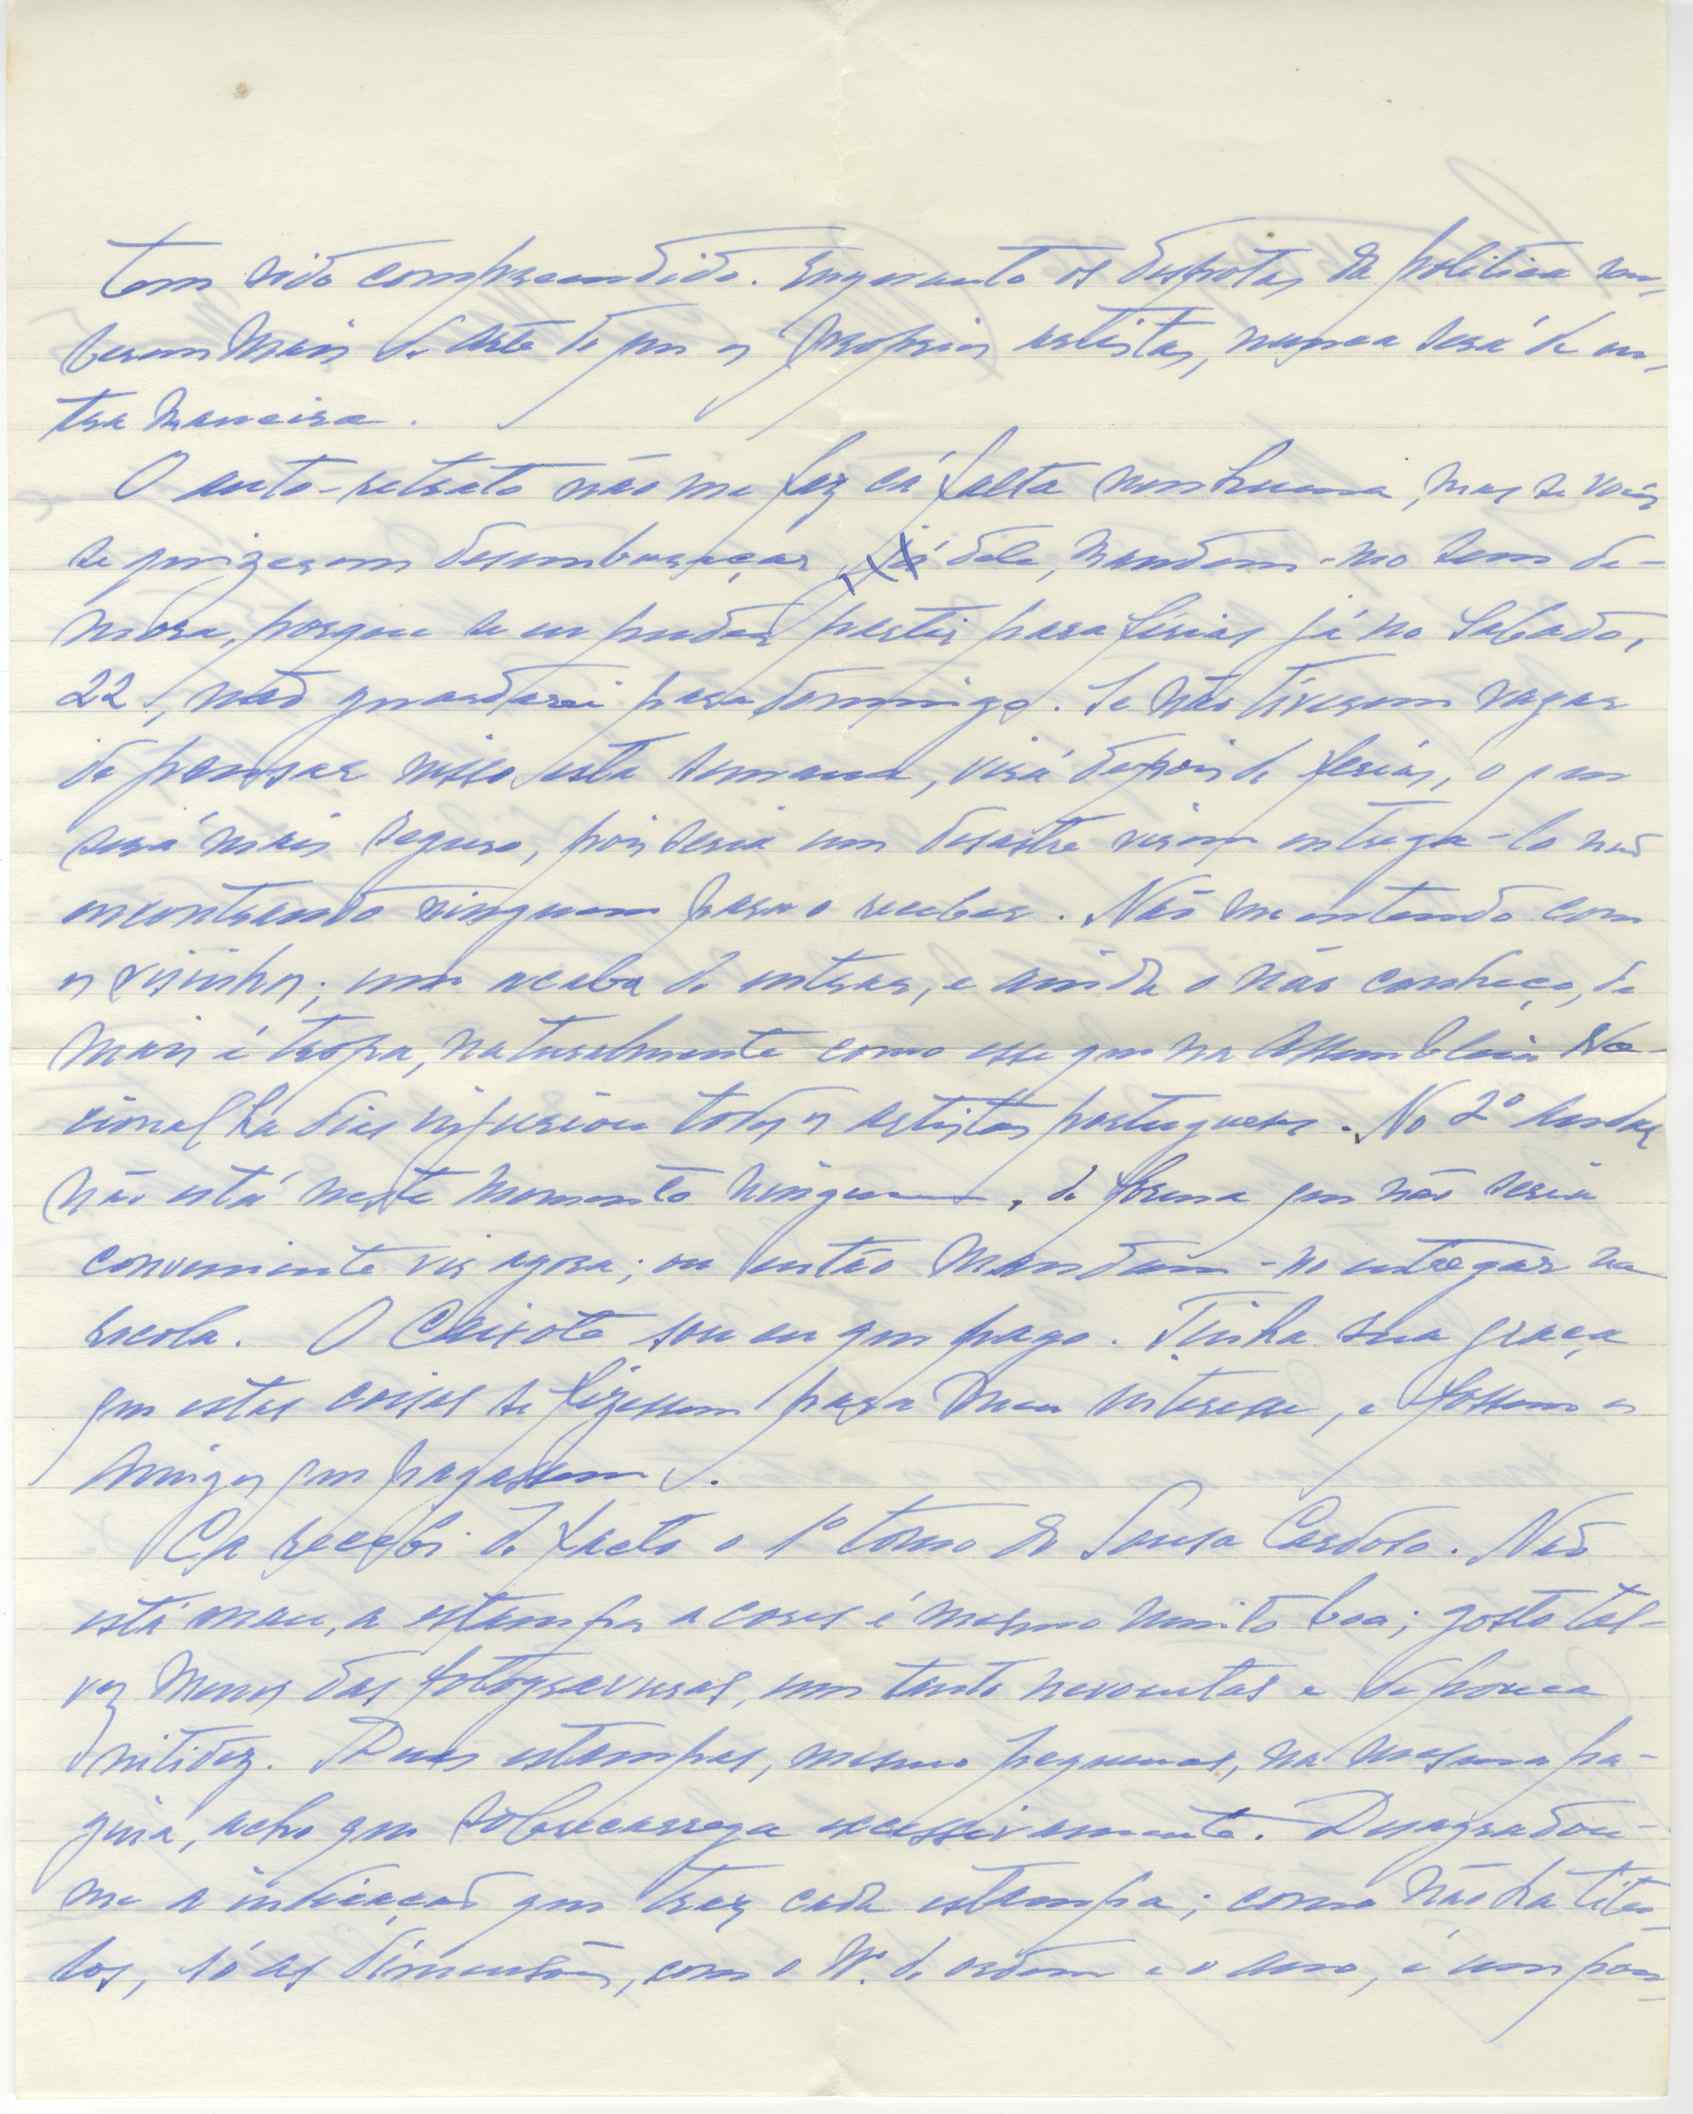 tem sido compreendido. Enquanto os despotas da politica sou-
berem mais de arte do que os proprios artistas, nunca será de ou-
tra maneira.
O auto-retrato não me faz cá falta nenhuma, mas se vocês
se quizerem desembaraçar já dele, mandem-no sem de-
mora, porque se eu puder partir para ferias já no Sabado,
22, não guardarei para domingo. Se não tiverem vagar
de pensar nisso esta semana, virá depois de ferias, o que
será mais seguro, pois seria um desastre virem entrega-lo não
encontrando ninguem para o receber. Não me entendo com
os visinhos; um acaba de entrar, e ainda o não conheço, de
mais é tropa, naturalmente como esse que na Assembleia Na-
cional ha dias injuriou todos os artistas portugueses. No 2º andar
não está neste momento ninguem, de forma que não seria
conveniente vir agora; ou então mandem-no entregar na
Escola. O Caixote sou eu que pago. Tinha sua graça
que estas coisas se fizessem para meu interesse, e fossem os
amigos que pagassem.
Cá recebi de facto o 1º tomo do Sousa Cardoso. Não
está mau, a estampa a cores é mesmo muito boa; gosto tal-
vez menos das fotogravuras, um tanto nevoentas e de pouca
nitidez. Duas estampas, mesmo pequenas, na mesma pa-
gina, acho que sobrecarrega excessivamente. Desagradou-
me a indicação que traz cada estampa; como não ha titu-
los, só as dimensões, com o Nº de ordem e o ano, é um pou-